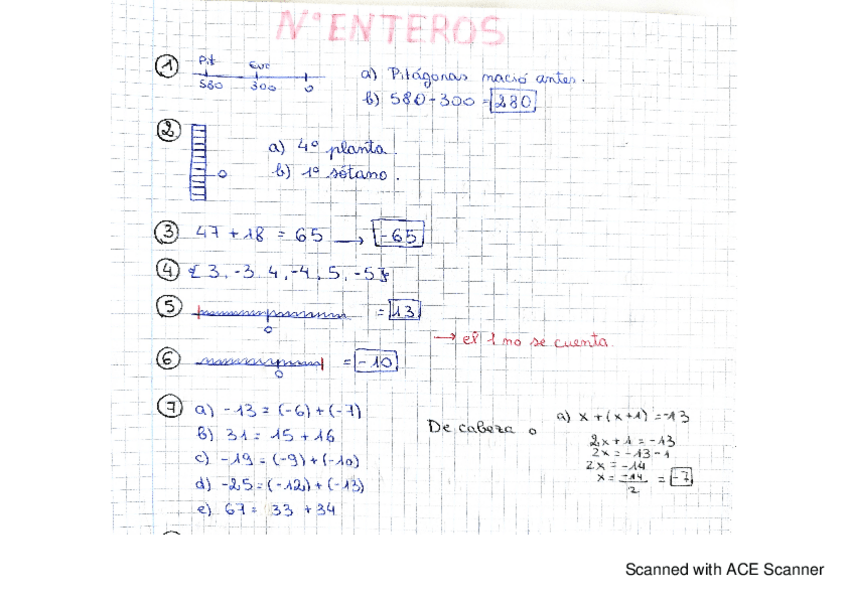 Nº ENTEROS
① Pit Euc
580 300 0
a) Pitágoras nació antes.
b) 580 - 300 = 280
②
0
a) 4º planta.
b) 1º sótano.
③ 47 + 18 = 65 → -65
④ { 3, -3 4, -4, 5, -5 }
⑤ 0 = 13
→ el 1 no se cuenta.
⑥ 0 = -10
⑦ a) -13 = (-6) + (-7)
b) 31 = 15 + 16
c) -19 = (-9) + (-10)
d) -25 = (-12) + (-13)
e) 67 = 33 + 34
De cabeza o
a) x + (x+1) = -13
2x + 1 = -13
2x = -13 - 1
2x = -14
x = -14/2 = -7
Scanned with ACE Scanner